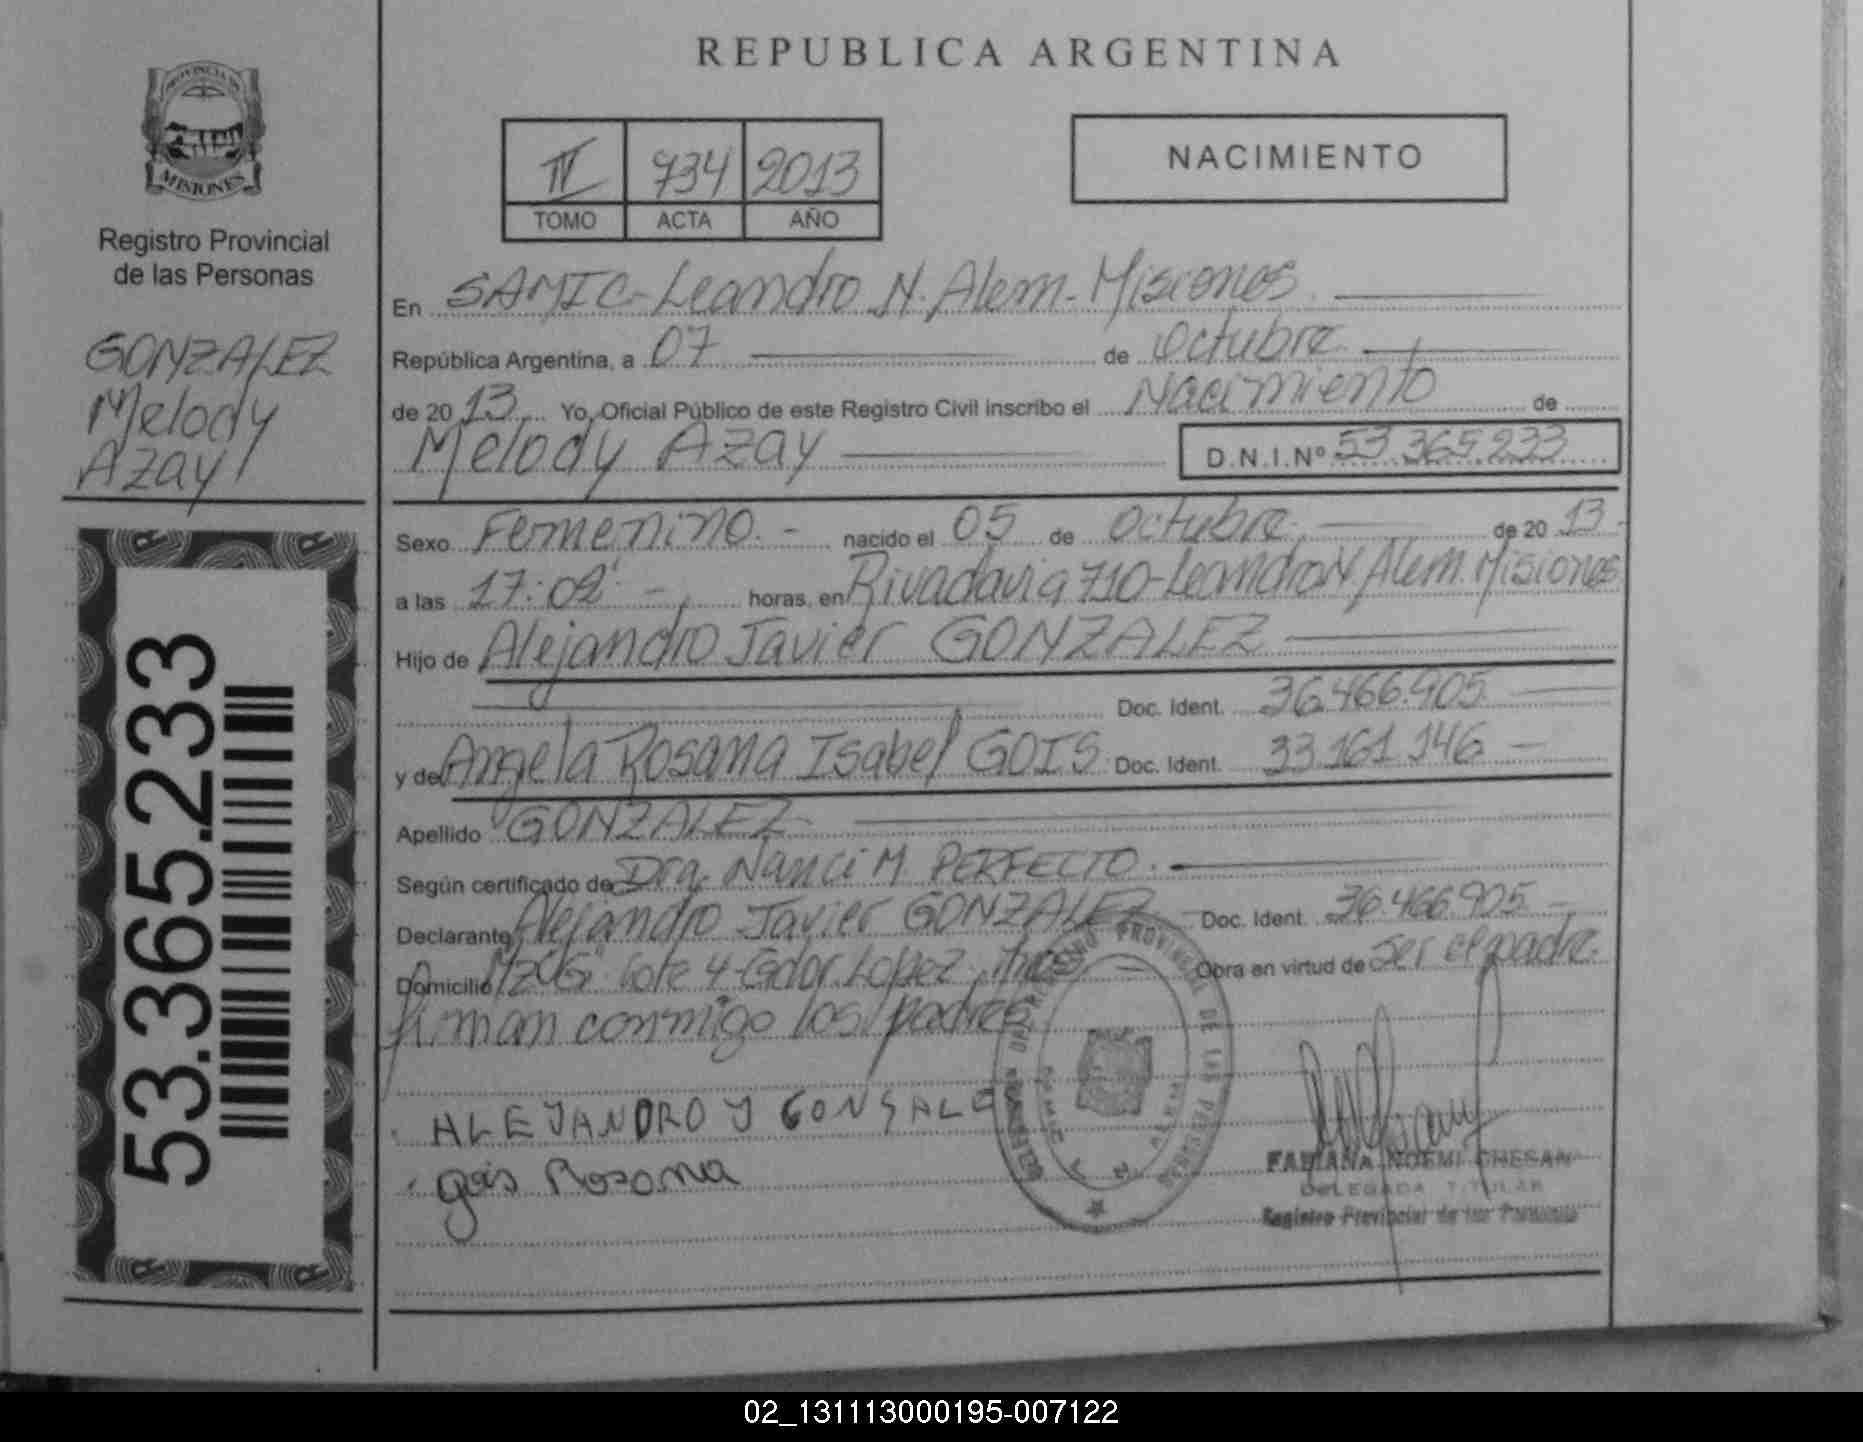 REPUBLICA ARGENTINA
PROVINCIA DE
MISIONES
Registro Provincial
de las Personas
GONZALEZ
Melody
Azay
53.365.233
IV 734 2013
TOMO ACTA AÑO
NACIMIENTO
En SAMIC-Leandro N. Alem-Misiones
República Argentina, a 07 de Octubre
de 2013 Yo, Oficial Público de este Registro Civil inscribo el Nacimiento de
Melody Azay D.N.I.Nº 53.365.233
Sexo Femenino.- nacido el 05 de Octubre de 2013-
a las 17:02' - horas, en Rivadavia 710-Leandro N Alem. Misiones
Hijo de Alejandro Javier GONZALEZ
Doc. Ident. 36.466.905
y de Angela Rosana Isabel GOIS Doc. Ident. 33.161.146 -
Apellido GONZALEZ
Según certificado de Dra. Nanci M. PERFECTO.-
Declarante Alejandro Javier GONZALEZ Doc. Ident. 36.466.905 -
Domicilio Lote 4-Gdor. Lopez, Mnes - Obra en virtud de ser el padre.
firman conmigo los padres
ALEJANDRO J GONSALE
gois Rosana
REGISTRO PROVINCIAL DE LAS PERSONAS
FABIANA NOEMI CHESANI
DELEGADA TITULAR
Registro Provincial de las Personas
02_131113000195-007122